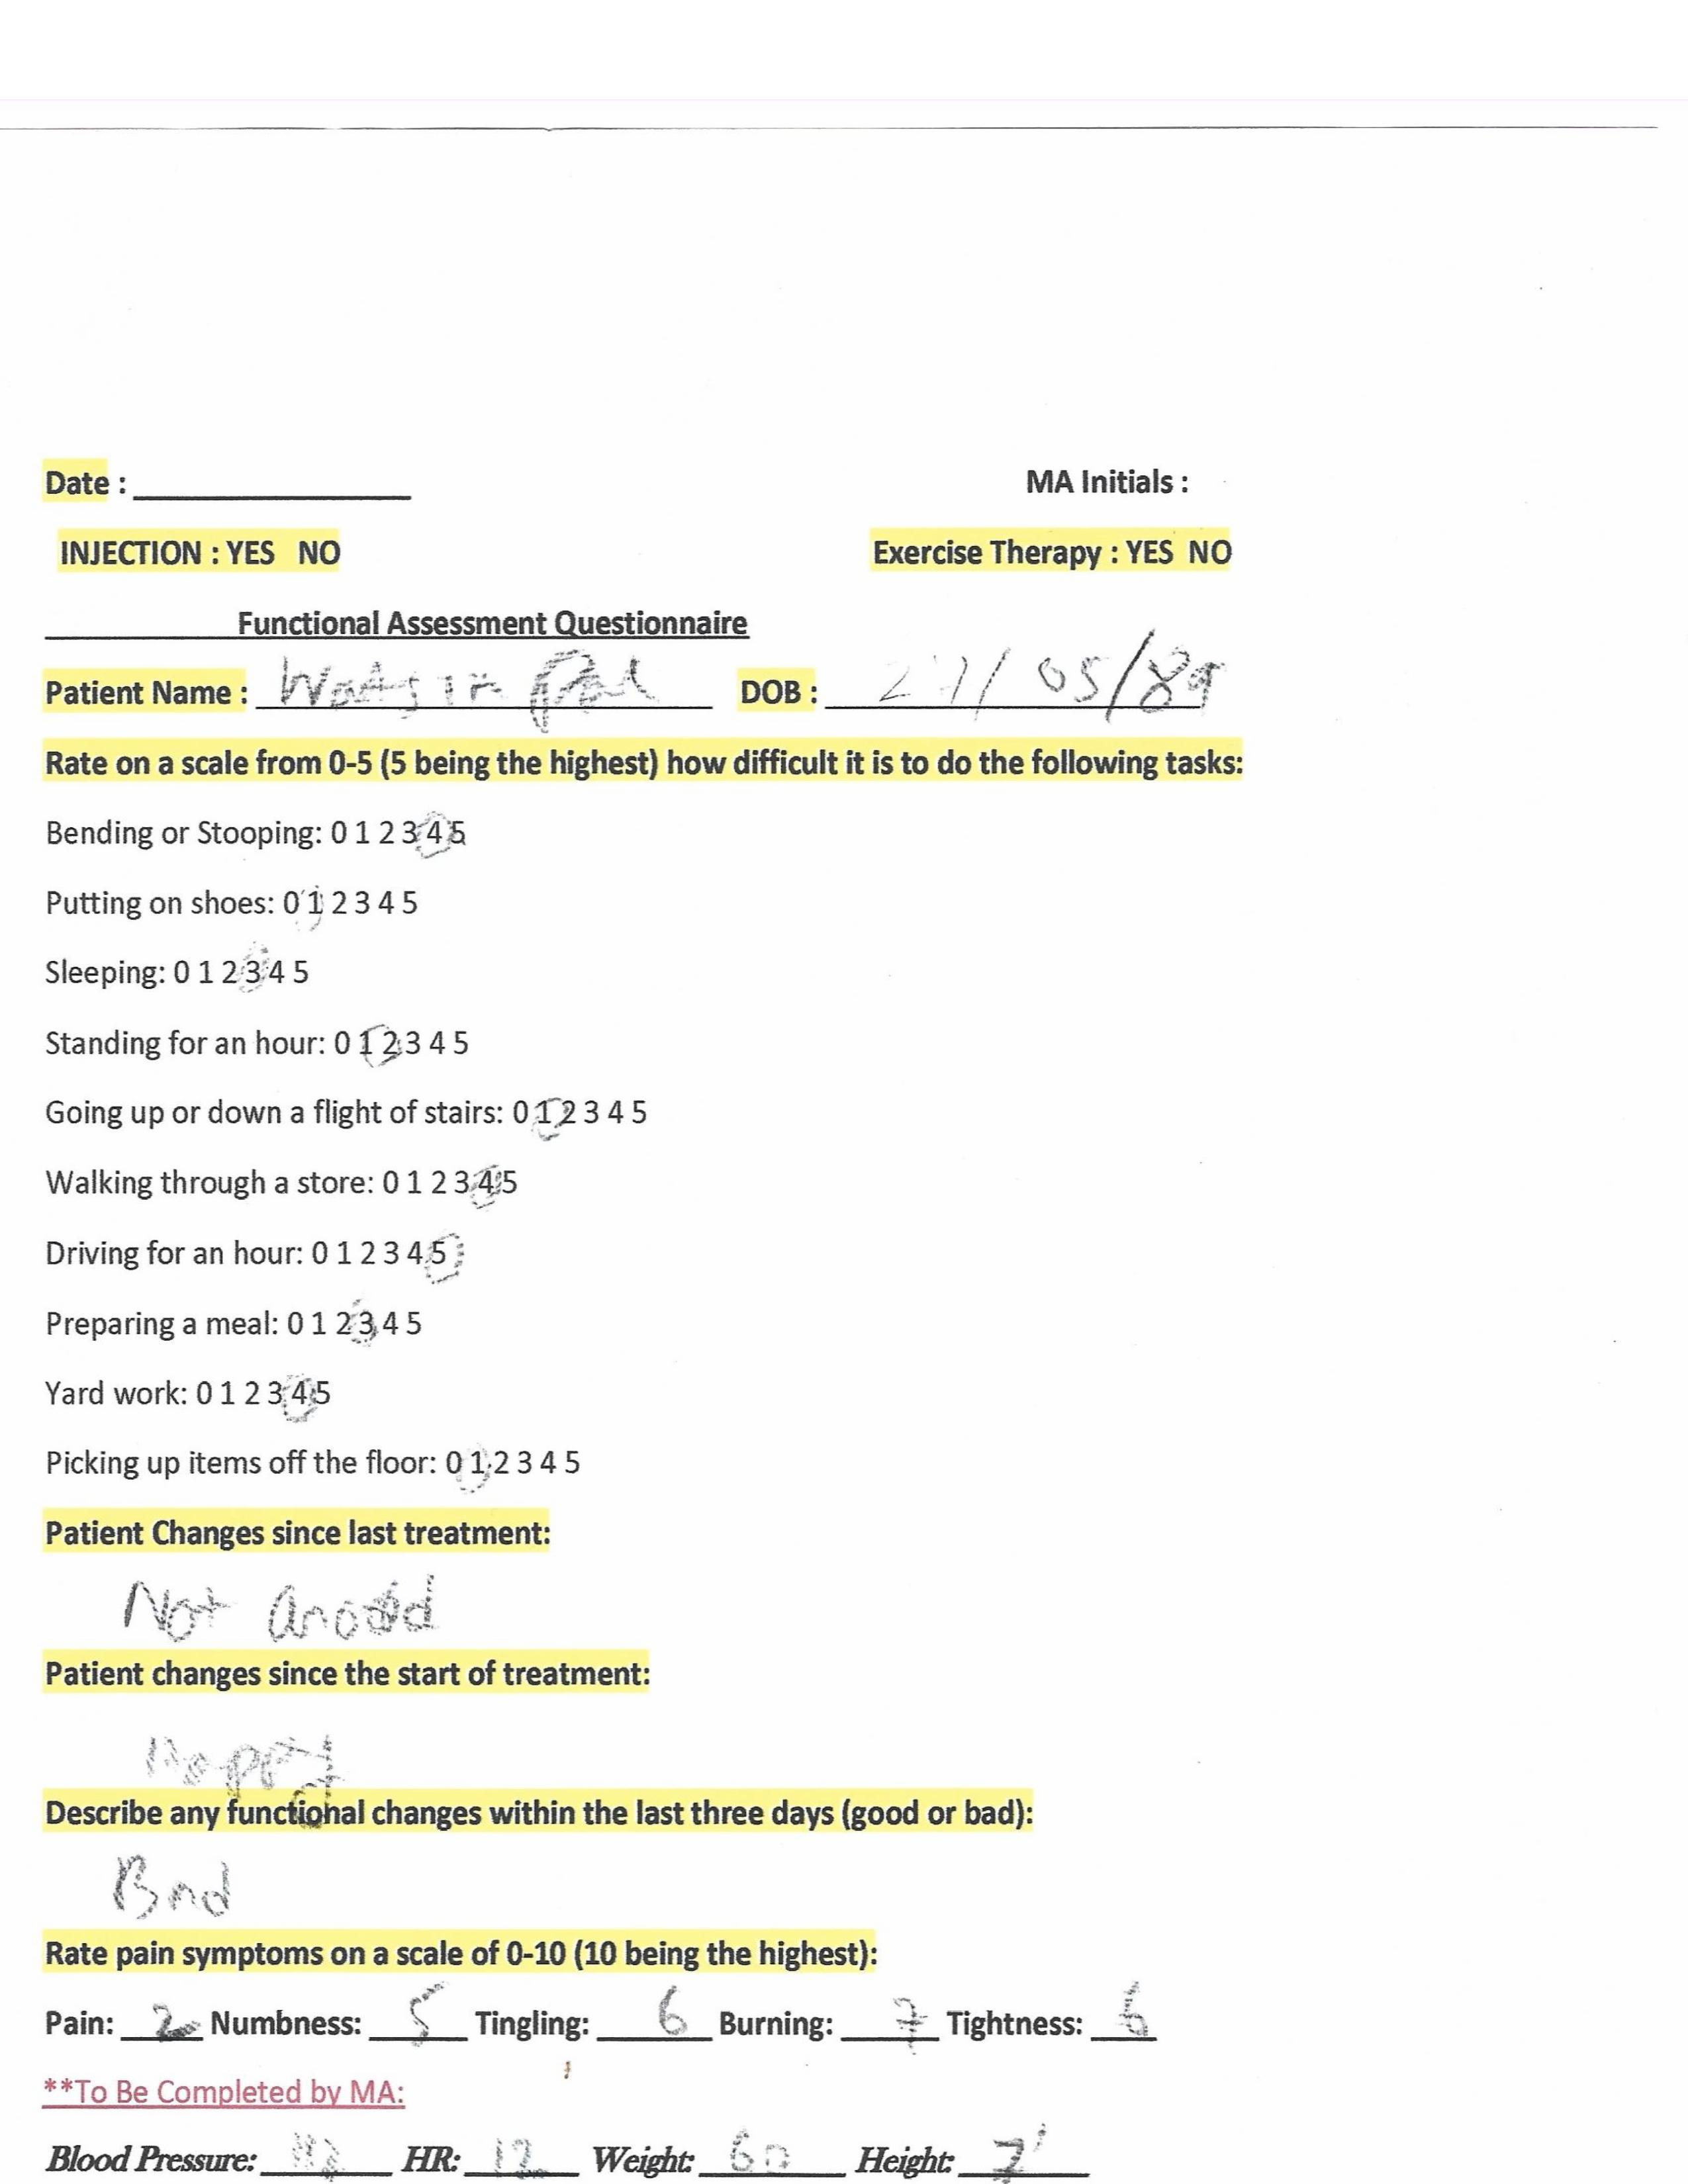 Date :
MA Initials :
INJECTION : YES NO
Exercise Therapy : YES NO
Functional Assessment Questionnaire
Patient Name : DOB : 27/05/89
Rate on a scale from 0-5 (5 being the highest) how difficult it is to do the following tasks:
Bending or Stooping: 0 1 2 3 4 5
Putting on shoes: 0 1 2 3 4 5
Sleeping: 0 1 2 3 4 5
Standing for an hour: 0 1 2 3 4 5
Going up or down a flight of stairs: 0 1 2 3 4 5
Walking through a store: 0 1 2 3 4 5
Driving for an hour: 0 1 2 3 4 5
Preparing a meal: 0 1 2 3 4 5
Yard work: 0 1 2 3 4 5
Picking up items off the floor: 0 1 2 3 4 5
Patient Changes since last treatment:
Not
Patient changes since the start of treatment:
Describe any functional changes within the last three days (good or bad):
Bad
Rate pain symptoms on a scale of 0-10 (10 being the highest):
Pain: 2 Numbness: 5 Tingling: 6 Burning: 7 Tightness:
**To Be Completed by MA:
Blood Pressure: HR: 12 Weight: 60 Height: 7'